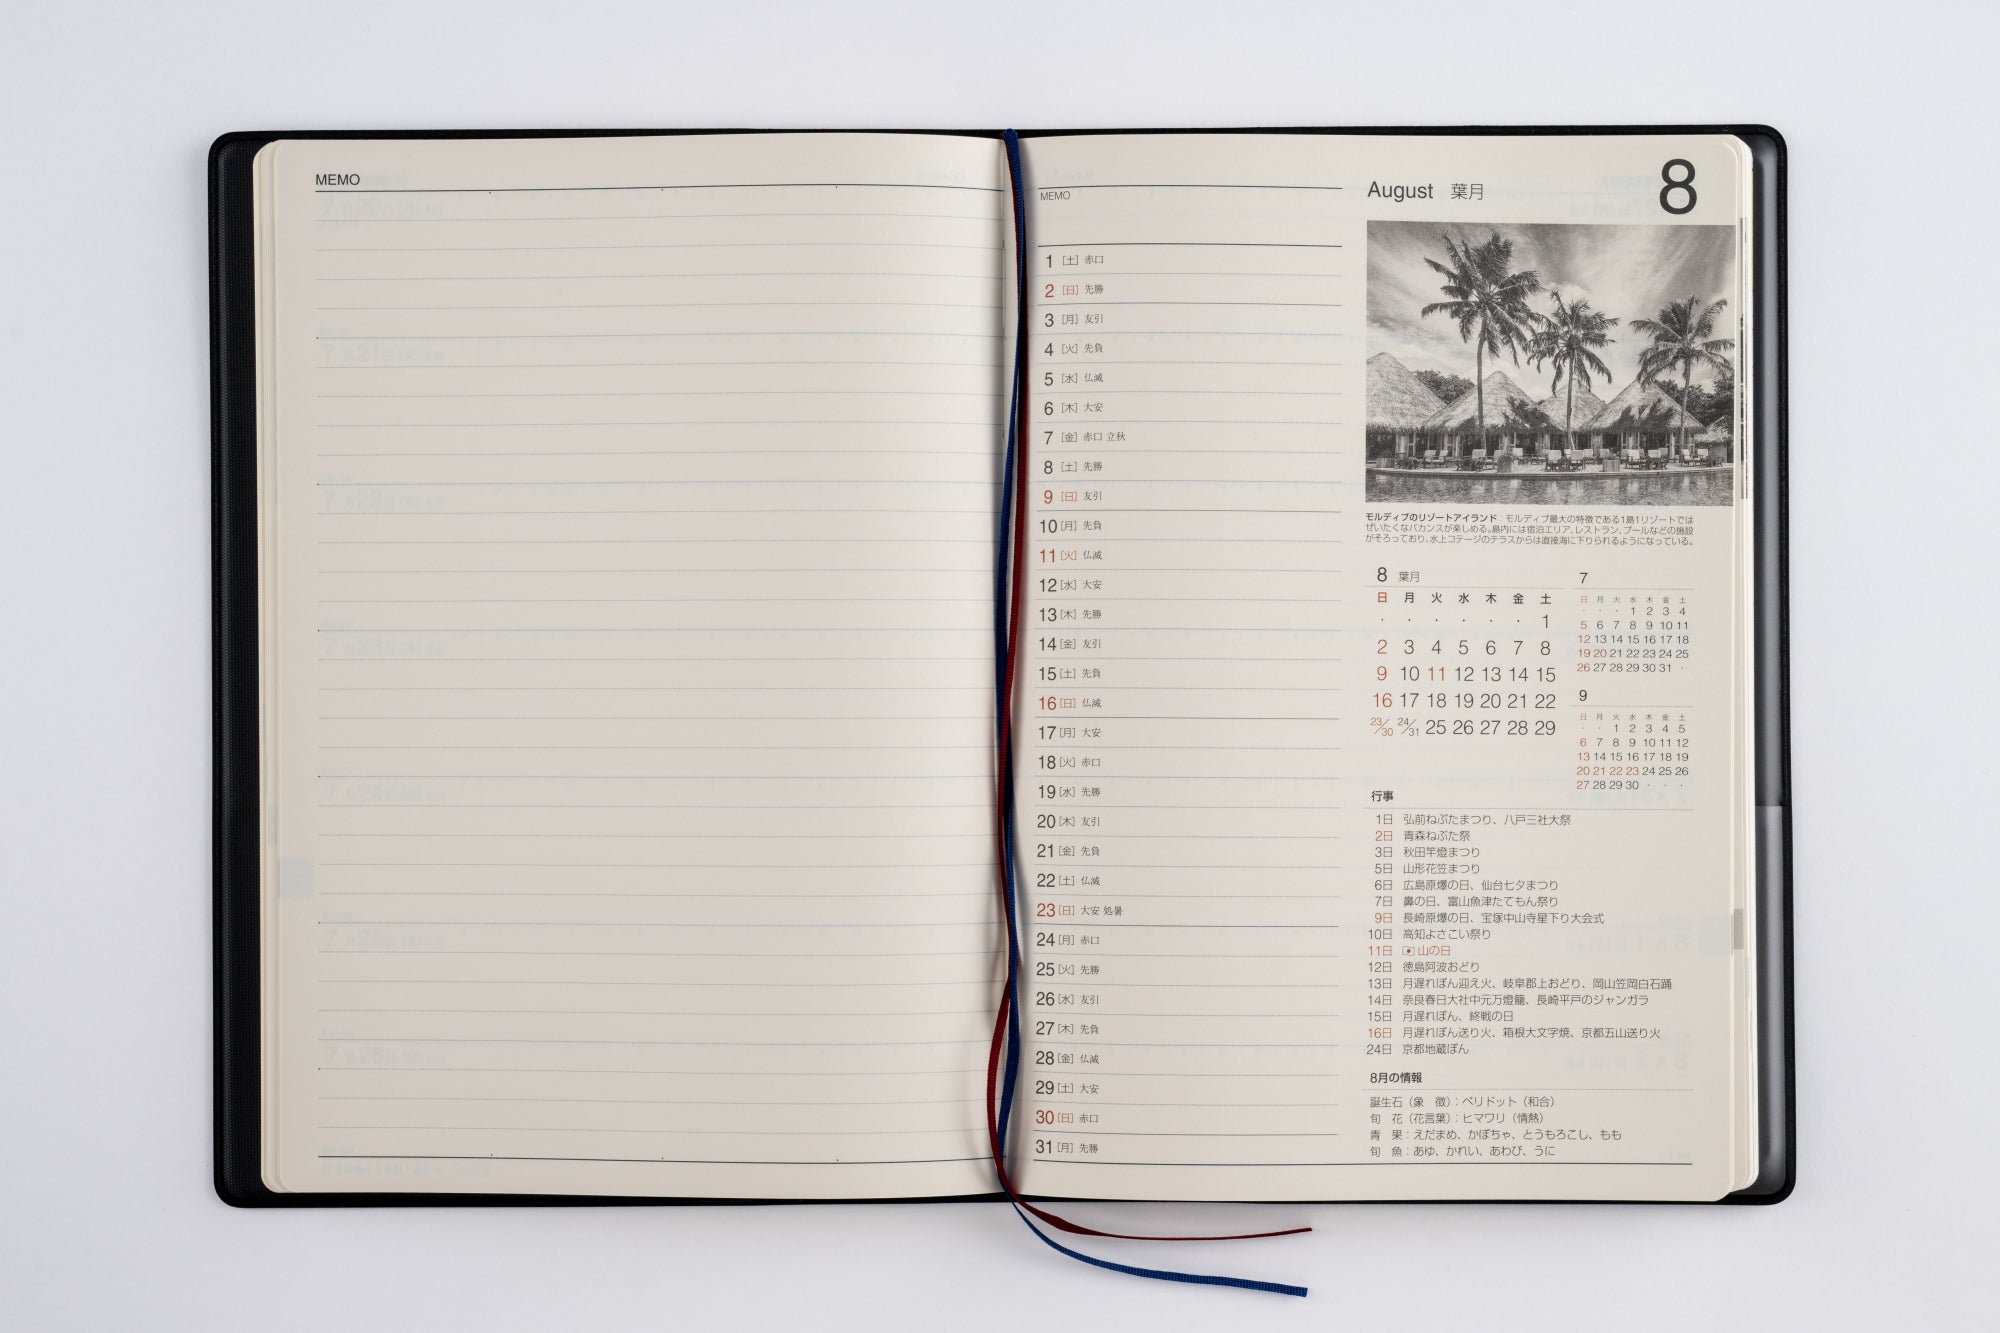 MEMO
MEMO
1 [土] 赤口
2 [日] 先勝
3 [月] 友引
4 [火] 先負
5 [水] 仏滅
6 [木] 大安
7 [金] 赤口 立秋
8 [土] 先勝
9 [日] 友引
10 [月] 先負
11 [火] 仏滅
12 [水] 大安
13 [木] 先勝
14 [金] 友引
15 [土] 先負
16 [日] 仏滅
17 [月] 大安
18 [火] 赤口
19 [水] 先勝
20 [木] 友引
21 [金] 先負
22 [土] 仏滅
23 [日] 大安 処暑
24 [月] 赤口
25 [火] 先勝
26 [水] 友引
27 [木] 先負
28 [金] 仏滅
29 [土] 大安
30 [日] 赤口
31 [月] 先勝
August 葉月 8
モルディブのリゾートアイランド：モルディブ最大の特徴である1島1リゾートでは
ぜいたくなバカンスが楽しめる。島内には宿泊エリア、レストラン、プールなどの施設
がそろっており、水上コテージのテラスからは直接海に下りられるようになっている。
8 葉月
日 月 火 水 木 金 土
· · · · · · 1
2 3 4 5 6 7 8
9 10 11 12 13 14 15
16 17 18 19 20 21 22
23/30 24/31 25 26 27 28 29
7
日 月 火 水 木 金 土
· · · 1 2 3 4
5 6 7 8 9 10 11
12 13 14 15 16 17 18
19 20 21 22 23 24 25
26 27 28 29 30 31 ·
9
日 月 火 水 木 金 土
· · 1 2 3 4 5
6 7 8 9 10 11 12
13 14 15 16 17 18 19
20 21 22 23 24 25 26
27 28 29 30 · · ·
行事
1日 弘前ねぷたまつり、八戸三社大祭
2日 青森ねぶた祭
3日 秋田竿燈まつり
5日 山形花笠まつり
6日 広島原爆の日、仙台七夕まつり
7日 鼻の日、富山魚津たてもん祭り
9日 長崎原爆の日、宝塚中山寺星下り大会式
10日 高知よさこい祭り
11日 山の日
12日 徳島阿波おどり
13日 月遅れぼん迎え火、岐阜郡上おどり、岡山笠岡白石踊
14日 奈良春日大社中元万燈籠、長崎平戸のジャンガラ
15日 月遅れぼん、終戦の日
16日 月遅れぼん送り火、箱根大文字焼、京都五山送り火
24日 京都地蔵ぼん
8月の情報
誕生石（象 徴）：ペリドット（和合）
旬 花（花言葉）：ヒマワリ（情熱）
青 果：えだまめ、かぼちゃ、とうもろこし、もも
旬 魚：あゆ、かれい、あわび、うに